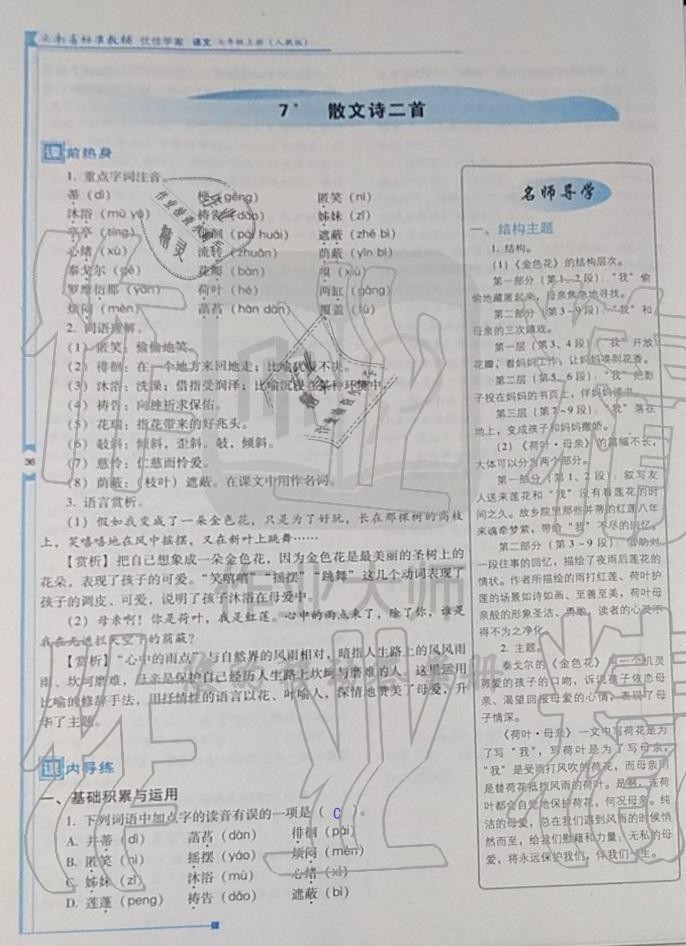 云南省标准教辅 优佳学案 语文 七年级上册（人教版）
7* 散文诗二首
课前热身
1. 重点字词注音。
蒂（dì） 梗（gěng） 匿笑（nì）
沐浴（mù yù） 祷告（dǎo） 姊妹（zǐ）
亭亭（tíng） 徘徊（pái huái） 遮蔽（zhē bì）
心绪（xù） 流转（zhuǎn） 荫蔽（yìn bì）
泰戈尔（gē） 花瓣（bàn） 嗅（xiù）
罗摩衍那（yǎn） 荷叶（hé） 两缸（gāng）
烦闷（mèn） 菡萏（hàn dàn） 覆盖（fù）
2. 词语理解。
（1）匿笑：偷偷地笑。
（2）徘徊：在一个地方来回地走；比喻犹疑不决。
（3）沐浴：洗澡；借指受润泽；比喻沉浸在某种环境中。
（4）祷告：向神祈求保佑。
（5）花瑞：指花带来的好兆头。
（6）敧斜：倾斜，歪斜。敧，倾斜。
（7）慈怜：仁慈而怜爱。
（8）荫蔽：（枝叶）遮蔽。在课文中用作名词。
3. 语言赏析。
（1）假如我变成了一朵金色花，只是为了好玩，长在那棵树的高枝
上，笑嘻嘻地在风中摇摆，又在新叶上跳舞……
【赏析】把自己想象成一朵金色花，因为金色花是最美丽的圣树上的
花朵，表现了孩子的可爱。“笑嘻嘻”“摇摆”“跳舞”这几个动词表现了
孩子的调皮、可爱，说明了孩子沐浴在母爱中。
（2）母亲啊！你是荷叶，我是红莲。心中的雨点来了，除了你，谁是
我在无遮拦天空下的荫蔽？
【赏析】“心中的雨点”与自然界的风雨相对，暗指人生路上的风风雨
雨、坎坷磨难，母亲是保护自己经历人生路上坎坷与磨难的人。这里运用
比喻的修辞手法，用抒情性的语言以花、叶喻人，深情地赞美了母爱，升
华了主题。
课内导练
一、基础积累与运用
1. 下列词语中加点字的读音有误的一项是（ C ）
A. 并蒂（dì） 菡萏（dàn） 徘徊（pái）
B. 匿笑（nì） 摇摆（yáo） 烦闷（mèn）
C. 姊妹（zǐ） 沐浴（mù） 心绪（xì）
D. 莲蓬（peng） 祷告（dǎo） 遮蔽（bì）
36
名师导学
一、结构主题
1. 结构。
（1）《金色花》的结构层次。
第一部分（第1、2段）：“我”偷
偷地藏匿起来，母亲焦急地寻找。
第二部分（第3～9段）：“我”和
母亲的三次嬉戏。
第一层（第3、4段）：“我”开放
花瓣，看妈妈工作，让妈妈嗅到花香。
第二层（第5、6段）：“我”把影
子投在妈妈的书页上，伴妈妈读书。
第三层（第7～9段）：“我”落在
地上，变成孩子和妈妈撒娇。
（2）《荷叶·母亲》的篇幅不长，
大体可以分为两个部分。
第一部分（第1、2段）：叙写友
人送来莲花和“我”没有看莲花的时
间之久。故乡院里那些并蒂的红莲八年
来魂牵梦萦，带给“我”不尽的回忆。
第二部分（第3～9段）：借助对
一段往事的回忆，描绘了夜雨后莲花的
情状。作者所描绘的雨打红莲、荷叶护
莲的场景如诗如画、至善至美，荷叶母
亲般的形象圣洁、勇敢，读者的心灵不
得不为之净化。
2. 主题。
泰戈尔的《金色花》用一个机灵
可爱的孩子的口吻，诉说孩子依恋母
亲、渴望回报母爱的心情，表现了母
子情深。
《荷叶·母亲》一文中写荷花是为
了写“我”，写荷叶是为了写母亲，
“我”是受雨打风吹的荷花，而母亲则
是替荷花抵挡风雨的荷叶。是啊，连荷
叶都会自觉地保护荷花，何况母亲。纯
洁的母爱，总在我们遇到风雨的时候悄
然而至，给我们慰藉和力量，无私的母
爱，将永远保护我们，伴我们一生。
作业大师